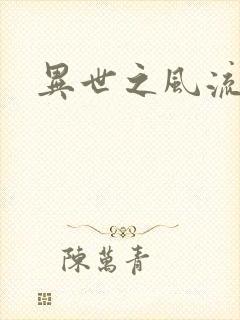 異世之風流
陳萬青